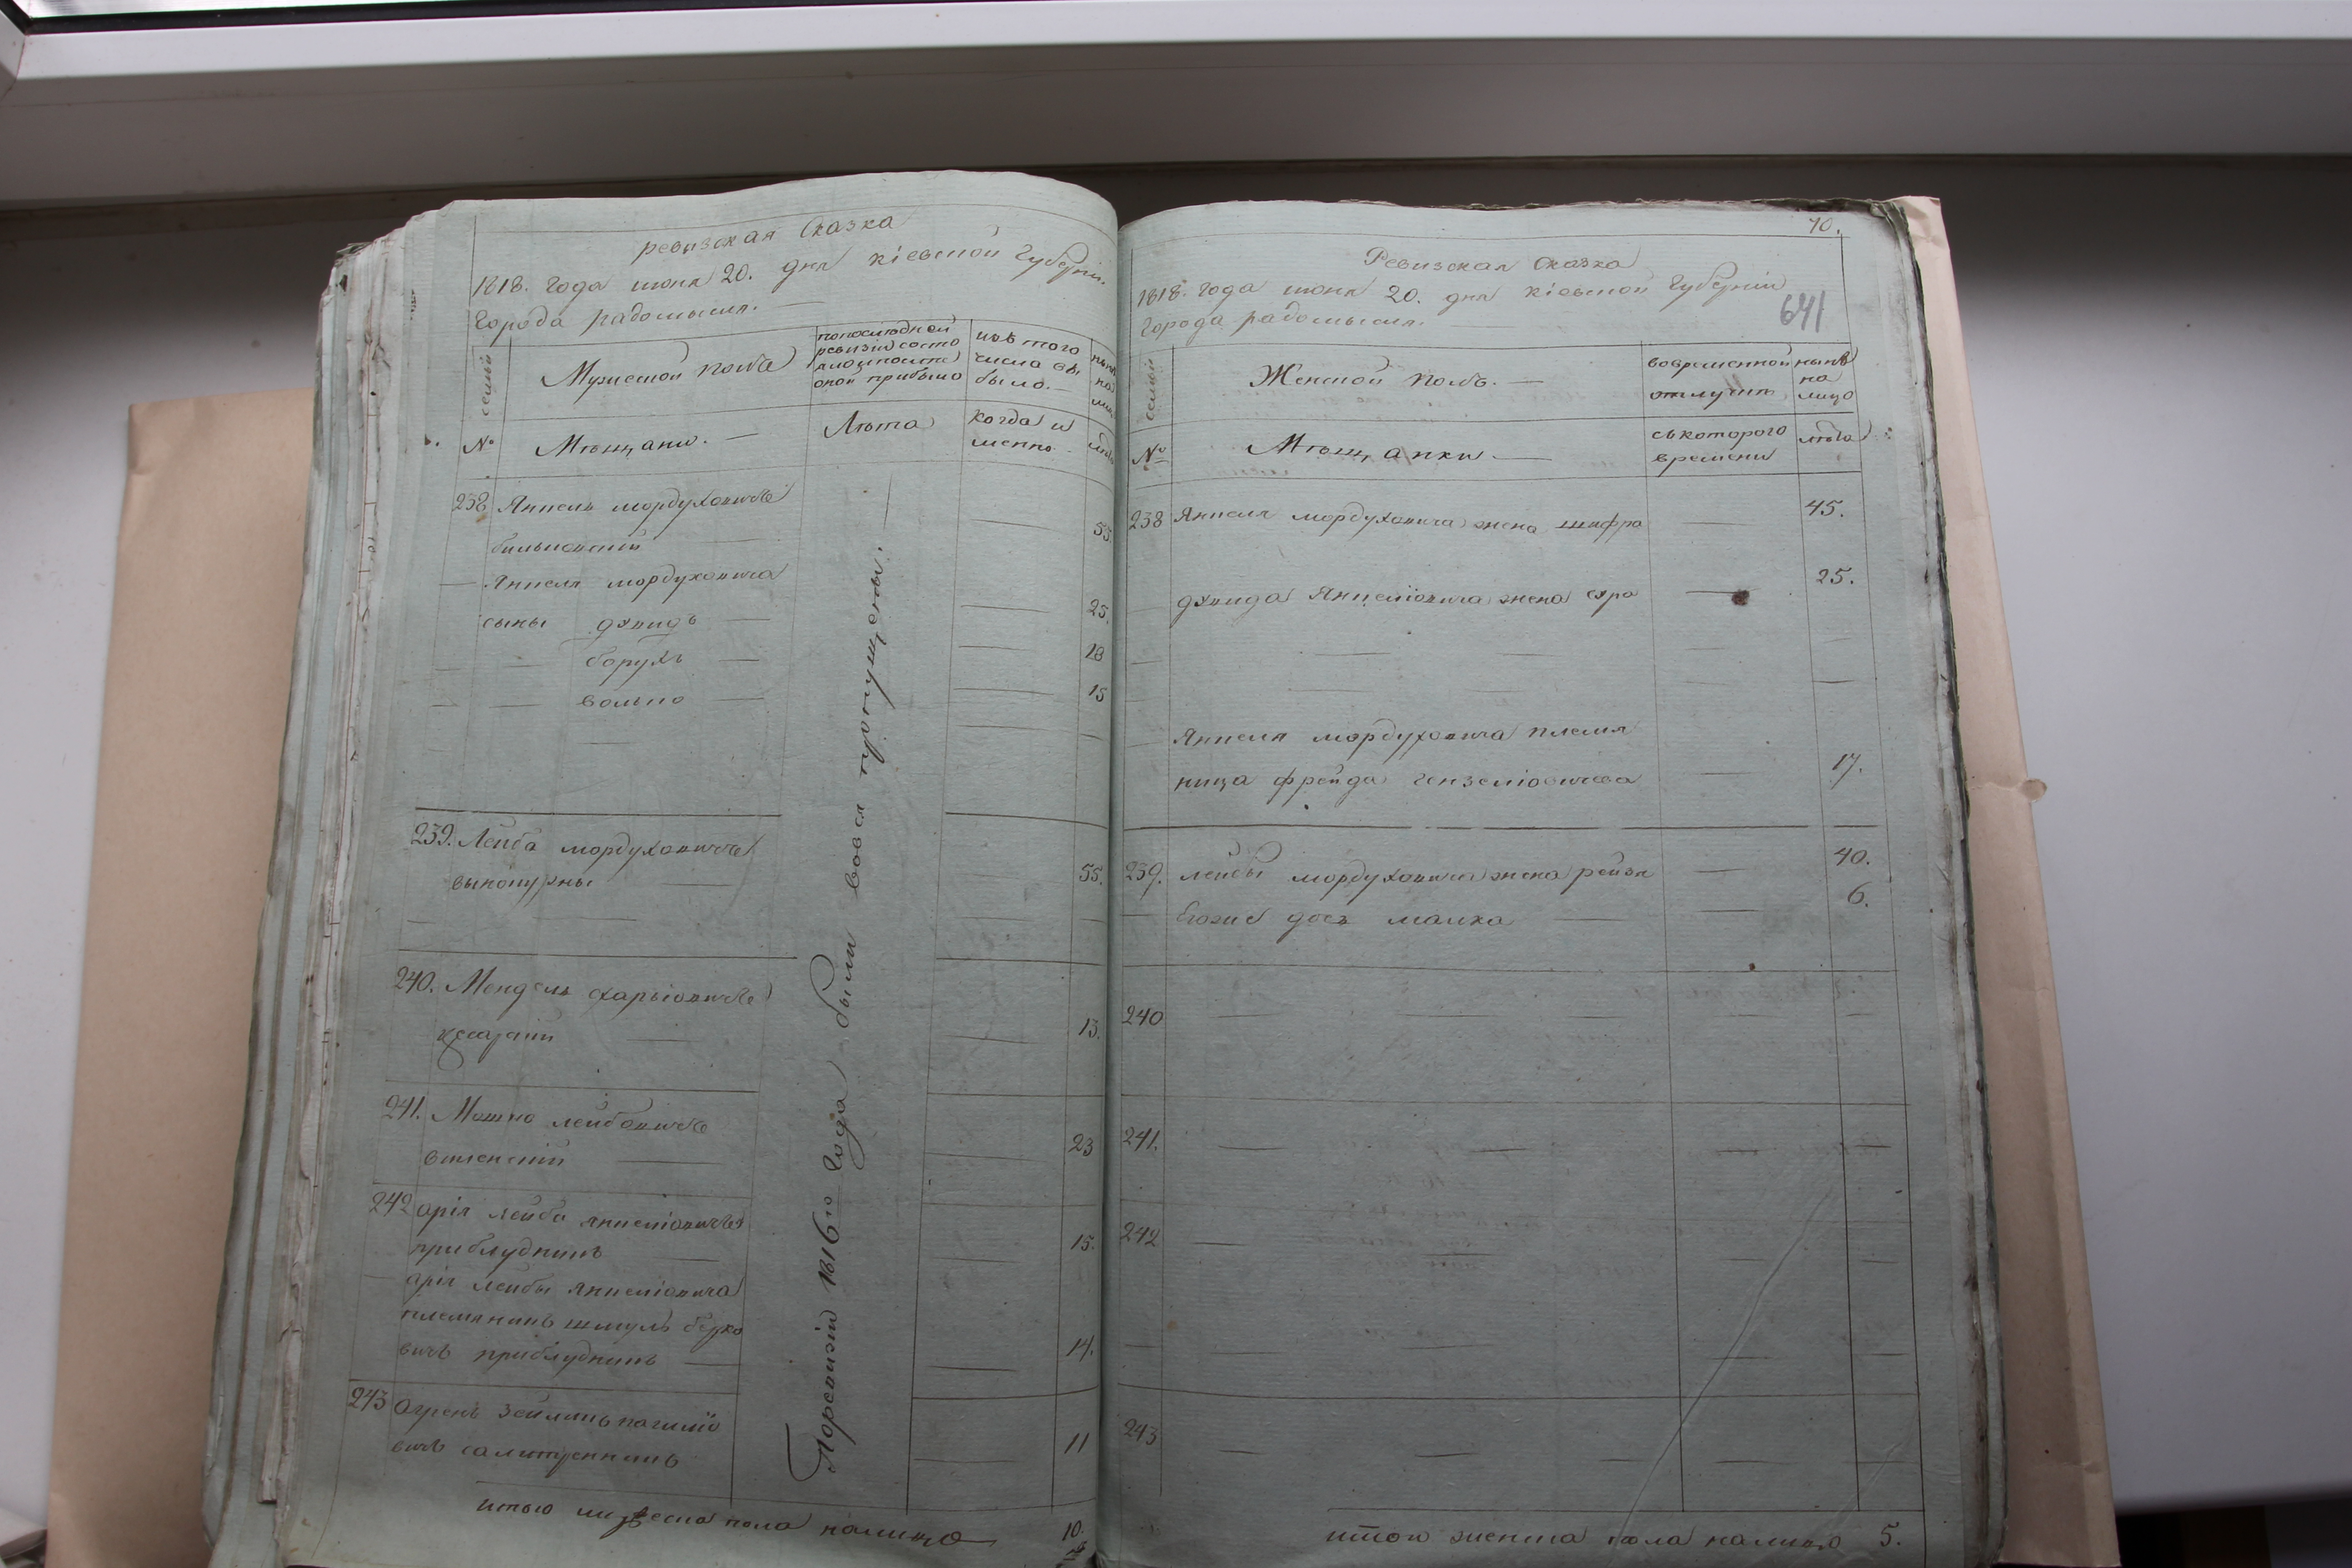 ревизская сказка
1818. Года июня 20. дня кіевской Губерніи
Города радомысля.
семьи
Мужеской полъ
попоследной
ревизіи состо
яло и после
оной прибыло
изъ того
числа вы
было.
нынѣ
на
лицо
№
Мѣщани.
Лѣта
когда и
менно.
лѣта
238 Янкель мордуховичъ
53
Янкеля мордуховича
сыны давидъ 25.
борухъ 18
волько 15
239. Лейба мордуховичъ
55.
240. Мендель
13.
241. Мошко лейбовичъ
23
242 арія лейба янкеліовичъ
приблудникъ 15.
арія лейбы янкеліовича
племяникъ шмуль берко
вичъ приблудникъ 14.
243
вичъ 11
Поревизіи 1816го Года были вовся пропущены.
итого мужеска пола налицо 10.
70.
641
Ревизская сказка
1818. года июня 20. дня кіевской Губерніи
Города радомысля.
семьи
Женской полъ.
вовременной
отлучки
нынѣ
на
лицо
№
Мѣщанки
съкоторого
времени
лѣта
238 Янкеля мордуховича жена шифра 45.
давида Янкеліовича жена сура 25.
Янкеля мордуховича племя
ница фрейда 17.
239. лейбы мордуховича жена рейзя 40.
Егожъ дочь малка 6.
240
241.
242
243
итого женска пола налицо 5.